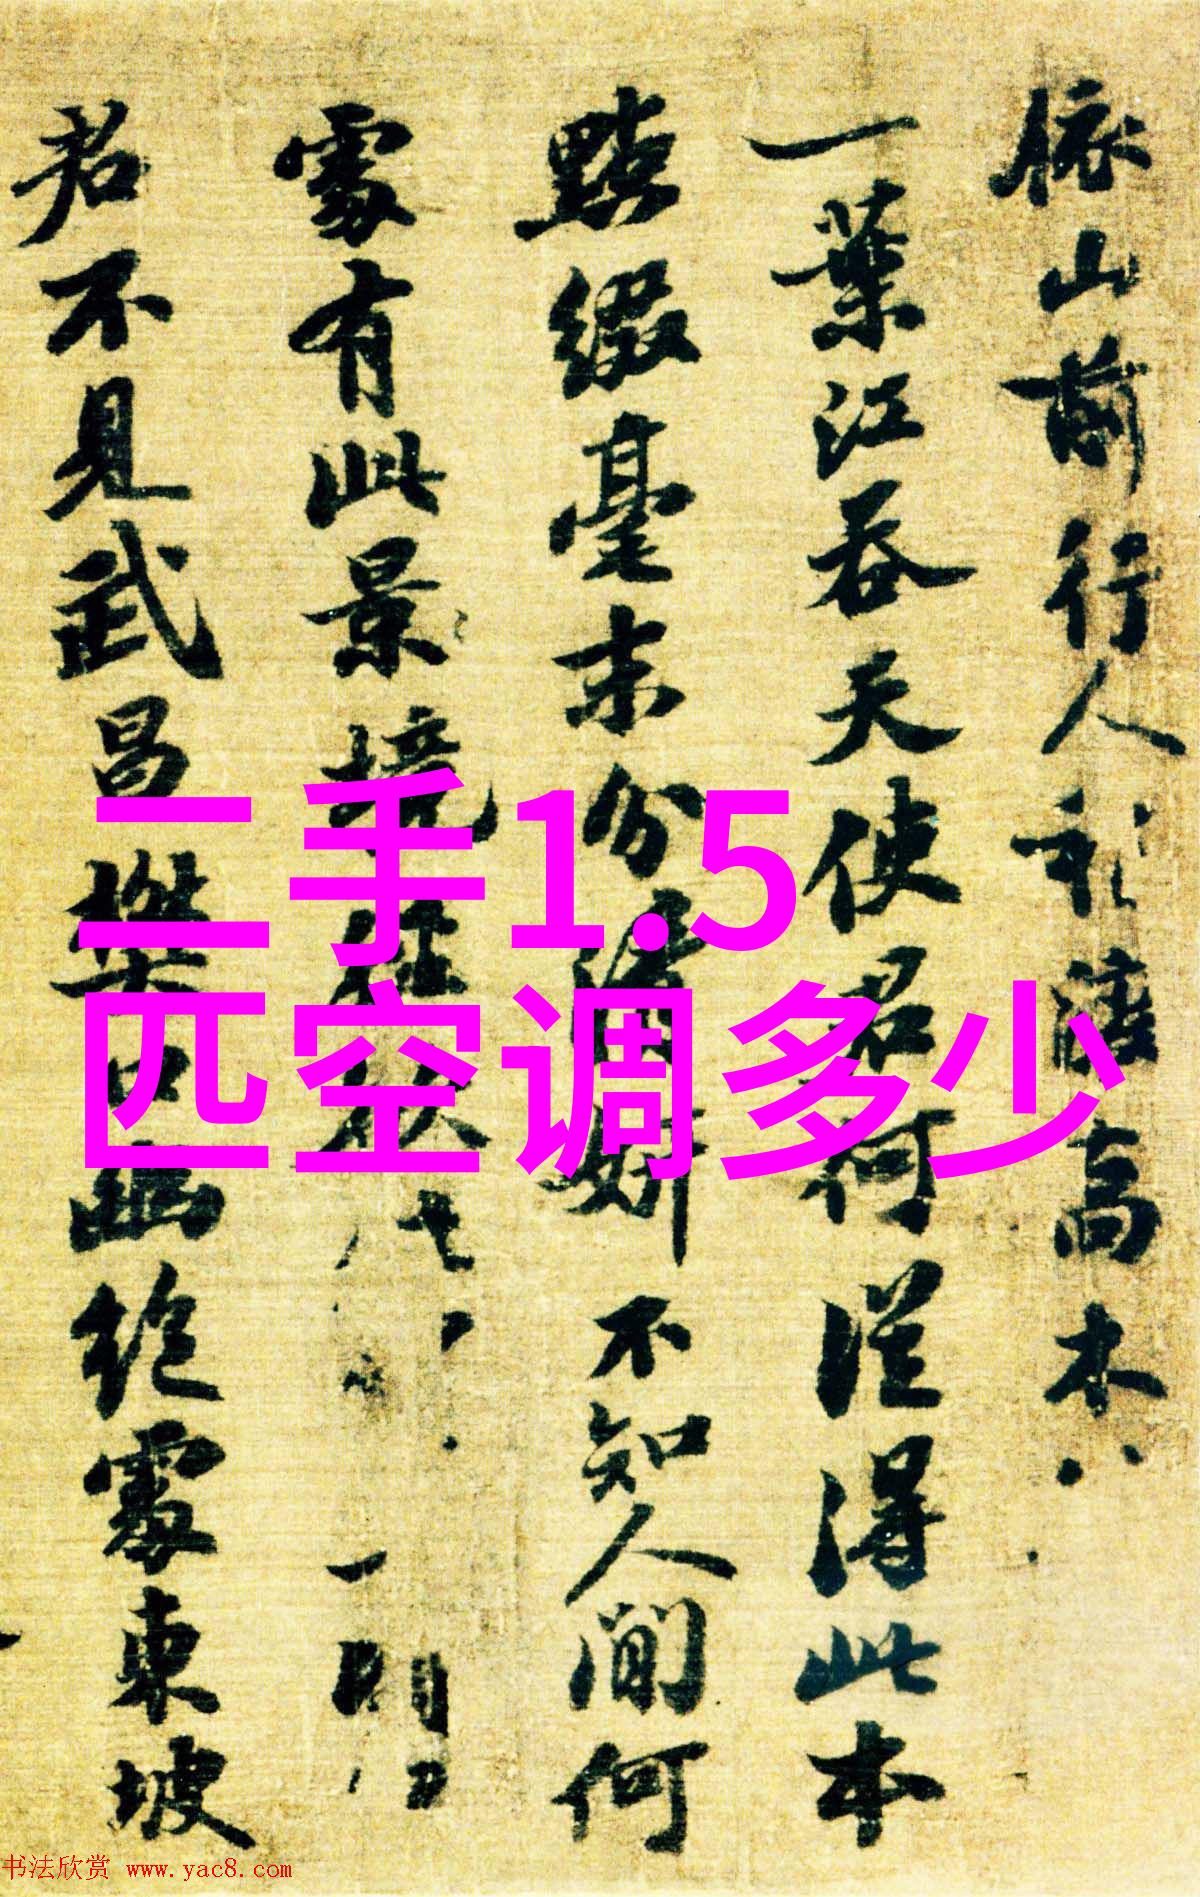 依山前行人
渡高木
一葉江吞天使君何從得此本
點綴毫末分清妍不知人間何
處有此景
君不見武昌樊口幽絕處東坡
二手1.5
匹空调多少
书法欣赏 www.yac8.com